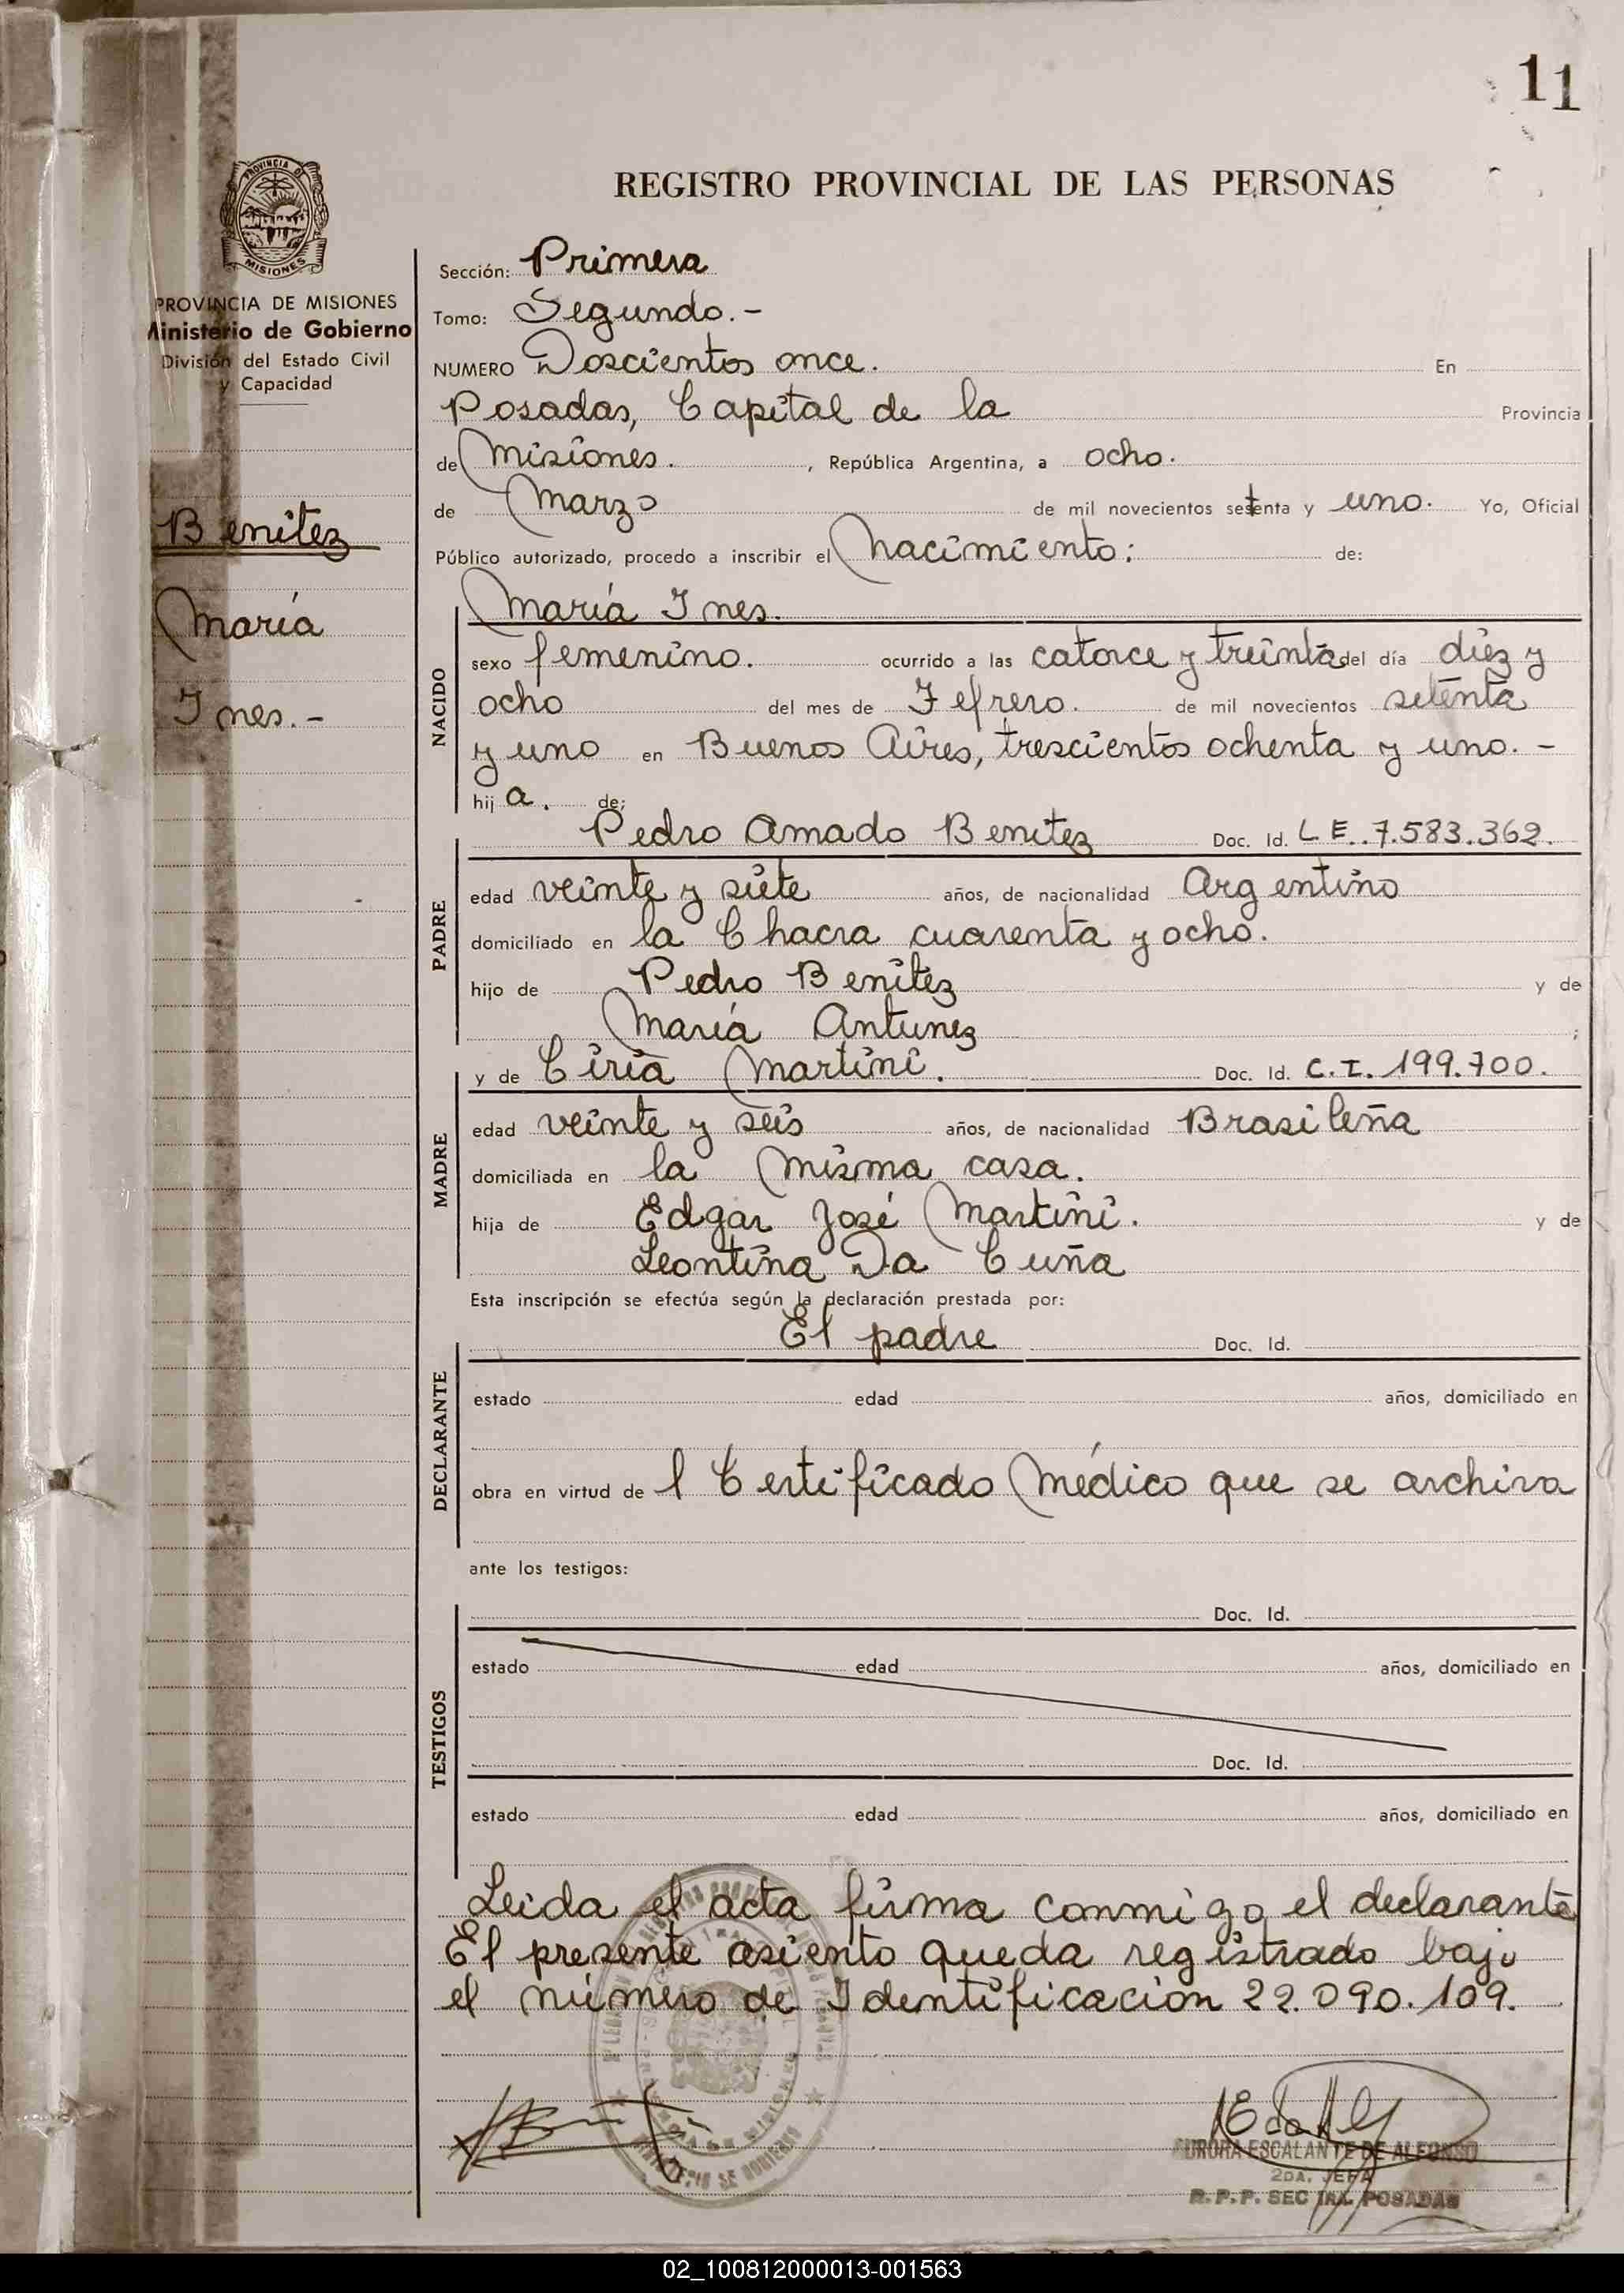 11
REGISTRO PROVINCIAL DE LAS PERSONAS
PROVINCIA DE MISIONES
Ministerio de Gobierno
División del Estado Civil
y Capacidad
Benitez
María
Ines.-
Sección: Primera
Tomo: Segundo.-
NUMERO Doscientos once. En
Posadas, Capital de la Provincia
de Misiones. , República Argentina, a ocho.
de Marzo de mil novecientos setenta y uno. Yo, Oficial
Público autorizado, procedo a inscribir el nacimiento: de:
María Ines.
NACIDO
sexo femenino. ocurrido a las catorce y treinta del día diez y
ocho del mes de Fefrero. de mil novecientos setenta
y uno en Buenos Aires, trescientos ochenta y uno.-
hij a. de:
Pedro Amado Benitez Doc. Id. L E. 7.583.362.
PADRE
edad veinte y siete años, de nacionalidad Argentino
domiciliado en la Chacra cuarenta y ocho.
hijo de Pedro Benitez y de
María Antunez ;
y de Ciria Martini. Doc. Id. C.I. 199.700.
MADRE
edad veinte y seis años, de nacionalidad Brasileña
domiciliada en la misma casa.
hija de Edgar José Martini. y de
Leontina Da Cuña
Esta inscripción se efectúa según la declaración prestada por:
El padre Doc. Id.
DECLARANTE
estado edad años, domiciliado en
obra en virtud de l Certificado Médico que se archiva
ante los testigos:
Doc. Id.
TESTIGOS
estado edad años, domiciliado en
Doc. Id.
estado edad años, domiciliado en
Leida el acta firma conmigo el declarante
El presente asiento queda registrado bajo
el número de Identificación 22.090.109.
AURORA ESCALANTE DE ALFONSO
2DA. JEFA
R.P.P. SEC 1RA. POSADAS
02_100812000013-001563